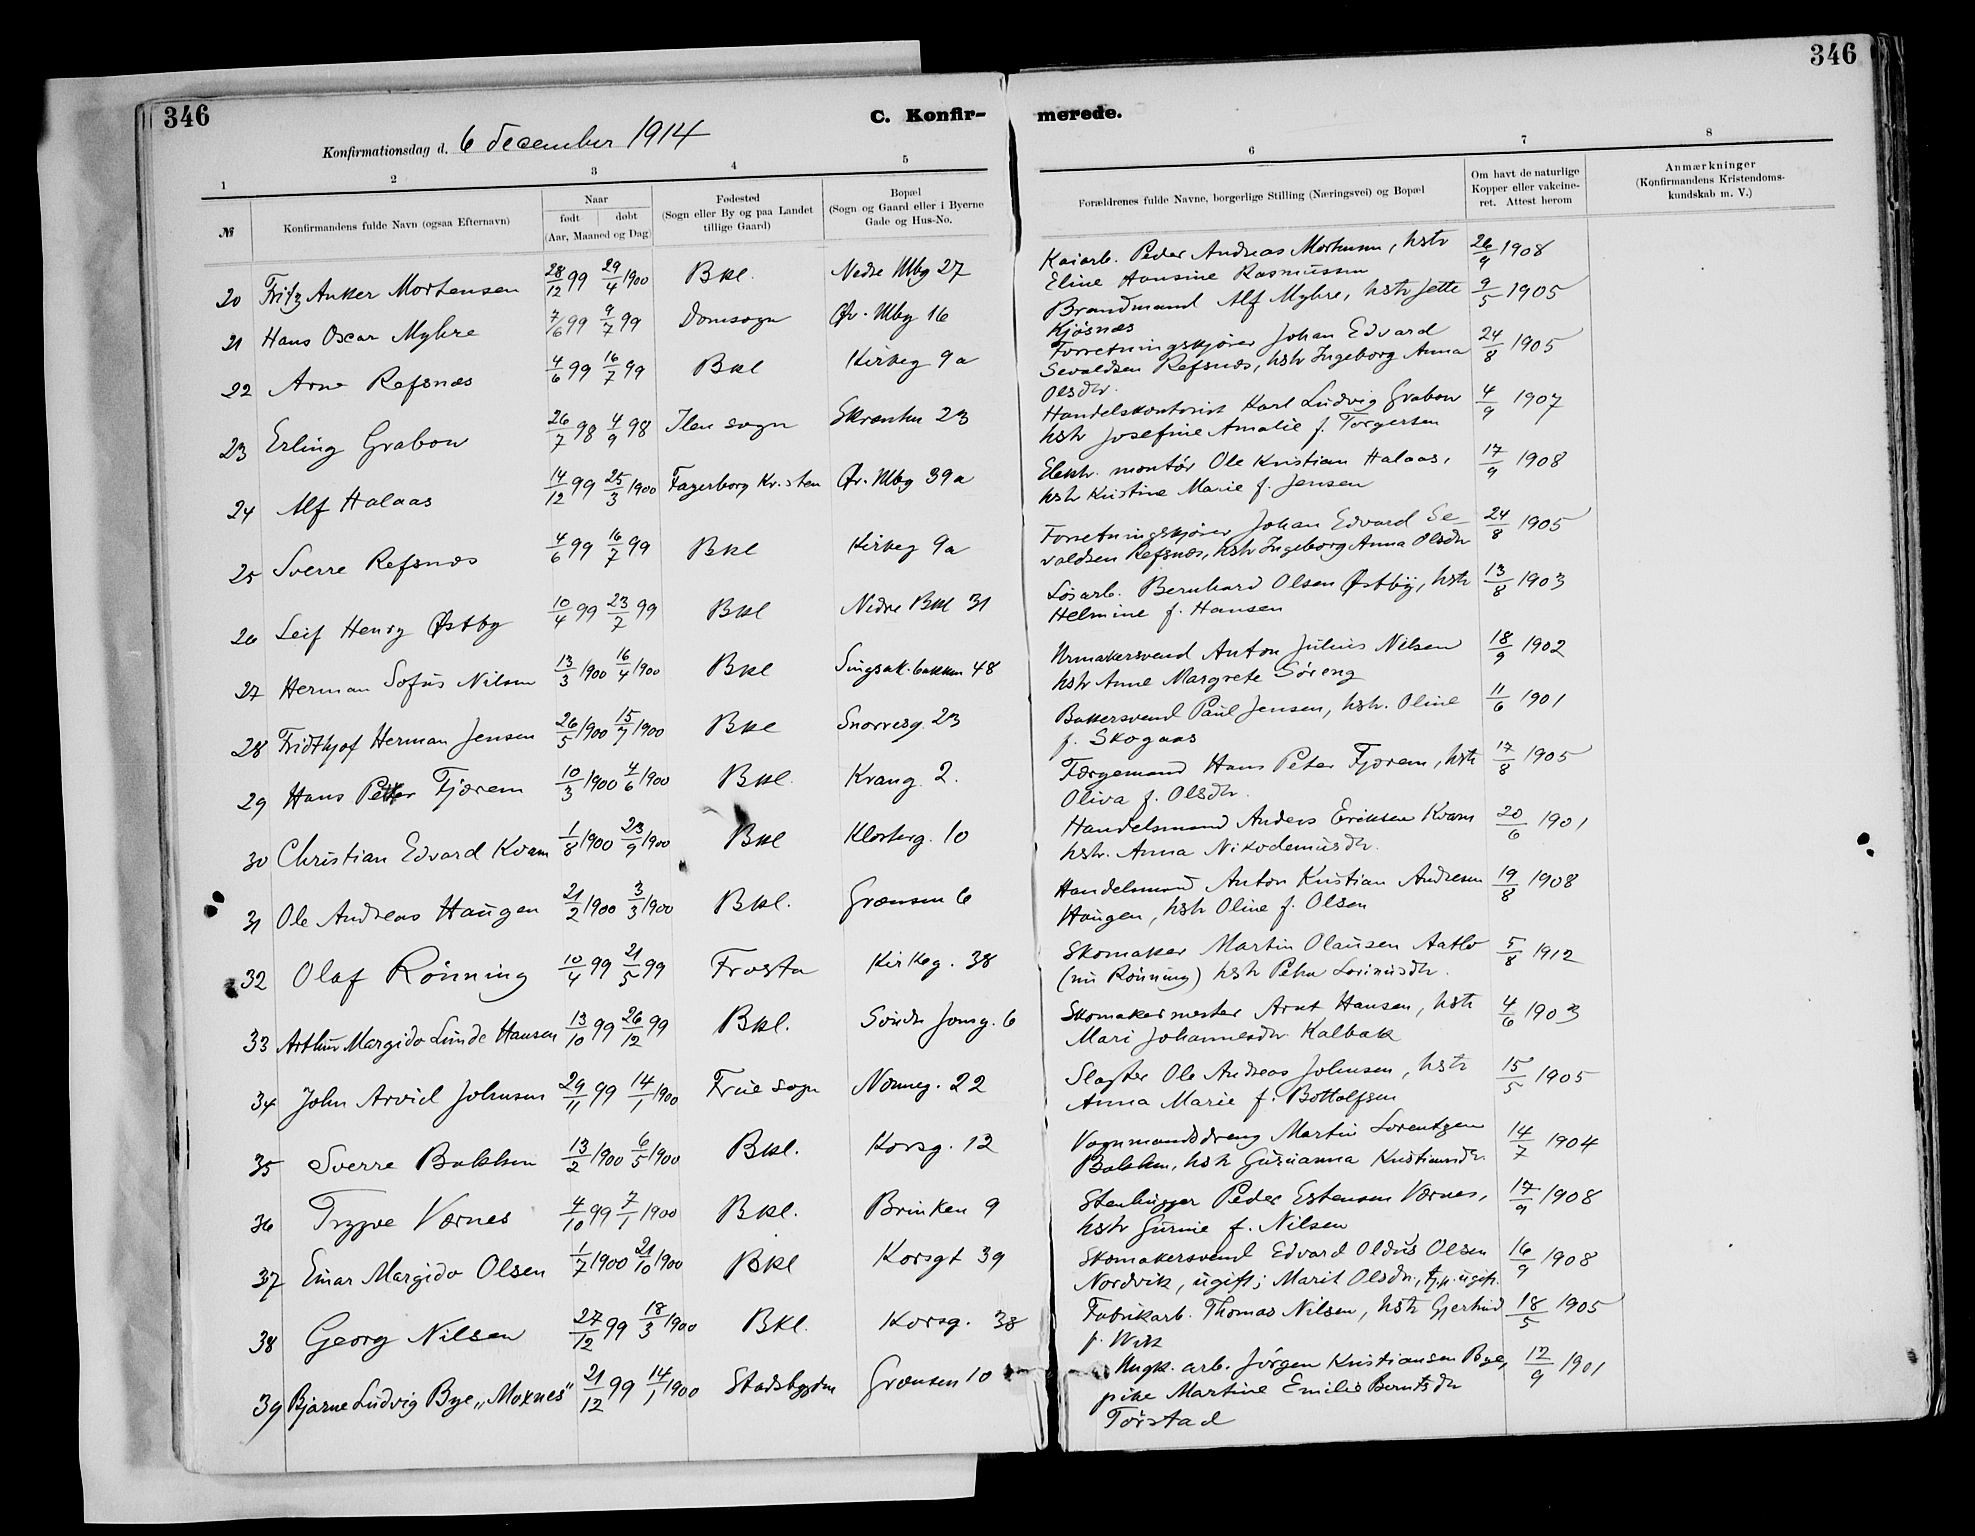 346
346
C. Konfir- merede.
Konfirmationsdag d. 6 december 1914
1 2 3 4 5 6 7 8
№
Konfirmandens fulde Navn (ogsaa Efternavn)
Naar
født døbt
(Aar, Maaned og Dag)
Fødested
(Sogn eller By og paa Landet
tillige Gaard)
Bopæl
(Sogn og Gaard eller i Byerne
Gade og Hus-No.
Forældrenes fulde Navne, borgerlige Stilling (Næringsvei) og Bopæl
Om havt de naturlige
Kopper eller vakcine-
ret. Attest herom
Anmærkninger
(Konfirmandens Kristendoms-
kundskab m. V.)
20 Fritz Anker Mortensen 28/12 99 29/4 1900 Bkl. Nedre Mbg 27 Kaiarb. Peder Andreas Mortensen, hstr 26/9 1908
Eline Hansine Rasmussen
21 Hans Oscar Myhre 7/6 99 9/7 99 Domsogn Øv. Mbg 16 Brandmand Alf Myhre, hstr Jette 9/5 1905
Kjøsnæs
22 Arne Refsnæs 4/6 99 16/7 99 Bkl Kirkeg 9a Forretningskjører Johan Edvard 24/8 1905
Sevaldsen Refsnæs, hstr Ingeborg Anna
Olsdtr.
23 Erling Grabow 26/7 98 4/9 98 Ilen sogn 23 Handelskontorist Karl Ludvig Grabow 4/9 1907
hstr Josefine Amalie f. Torgersen
24 Alf Halaas 14/12 99 25/3 1900 Fagerborg Kr.sten Øv. Mbg 39a Elektr. montør Ole Kristian Halaas, 17/9 1908
hstr Kristine Marie f. Jensen
25 Sverre Refsnæs 4/6 99 16/7 99 Bkl Kirkeg 9a Forretningskjører Johan Edvard Se- 24/8 1905
valdsen Refsnæs, hstr Ingeborg Anna Olsdtr
26 Leif Henry Østby 10/4 99 23/7 99 Bkl Nedre Bkl 31 Løsarb. Bernhard Olsen Østby, hstr 13/8 1903
Helmine f. Hansen
27 Herman Sofus Nilsen 13/3 1900 16/4 1900 Bkl Singsak.bakken 48 Urmakersvend Anton Julius Nilsen 18/9 1902
hstr Anne Margrete Søreng
28 Fridthjof Herman Jensen 26/5 1900 15/7 1900 Bkl Snorresg. 23 Bakersvend Paul Jensen, hstr. Oline 11/6 1901
f. Skogaas
29 Hans Petter Fjørem 10/3 1900 4/6 1900 Bkl. Krang. 2. Færgemand Hans Peter Fjørem, hstr 17/8 1905
Oliva f. Olsdtr.
30 Christian Edvard Kvam 1/8 1900 23/9 1900 Bkl Klosterg. 10 Handelsmand Anders Eriksen Kvam 20/6 1901
hstr. Anna Nikodemusdtr.
31 Ole Andreas Haugen 21/2 1900 3/3 1900 Bkl. Grænsen 6 Handelsmand Anton Kristian Andresen 19/8 1908
Haugen, hstr Oline f. Olsen
32 Olaf Rönning 10/4 99 21/5 99 Frosta Kirkeg. 38 Skomaker Martin Olausen Aatlo 5/8 1912
(nu Rönning) hstr Petra Sorinusdtr.
33 Arthur Margido Lunde Hansen 13/10 99 26/12 99 Bkl. Söndre Jonsg. 6 Skomakermester Arnt Hansen, hstr 4/6 1903
Mari Johannesdtr Kalbak
34 John Arvid Johnsen 29/11 99 14/1 1900 Frue sogn Nonneg. 22 Slagter Ole Andreas Johnsen, hstr 15/5 1905
Anna Marie f. Bottolfsen
35 Sverre Bakken 13/2 1900 6/5 1900 Bkl. Korsg. 12 Vognmandsdreng Martin Lorentzen 14/7 1904
Bakken, hstr Gurianna Kristiansdtr.
36 Trygve Værnes 4/10 99 7/1 1900 Bkl. Brinken 9 Stenhugger Peder Estensen Værnes, 17/9 1908
hstr Gurine f. Nilsen
37 Einar Margido Olsen 1/7 1900 21/10 1900 Bkl Korsgt 39 Skomakersvend Edvard Oldus Olsen 16/9 1908
Nordvik, ugift; Marit Olsdtr., tj.p. ugift
38 Georg Nilsen 27/12 99 18/3 1900 Bkl. Korsg. 38 Fabrikarb. Thomas Nilsen, hstr Gjertrud 18/5 1905
f. Wik
39 Bjarne Ludvig Bye „Moxnes" 21/12 99 14/1 1900 Stadsbygden Grænsen 10 Ungk. arb. Jörgen Kristiansen Bye, 12/9 1901
pike Martine Emilie Berntsdtr
Törstad